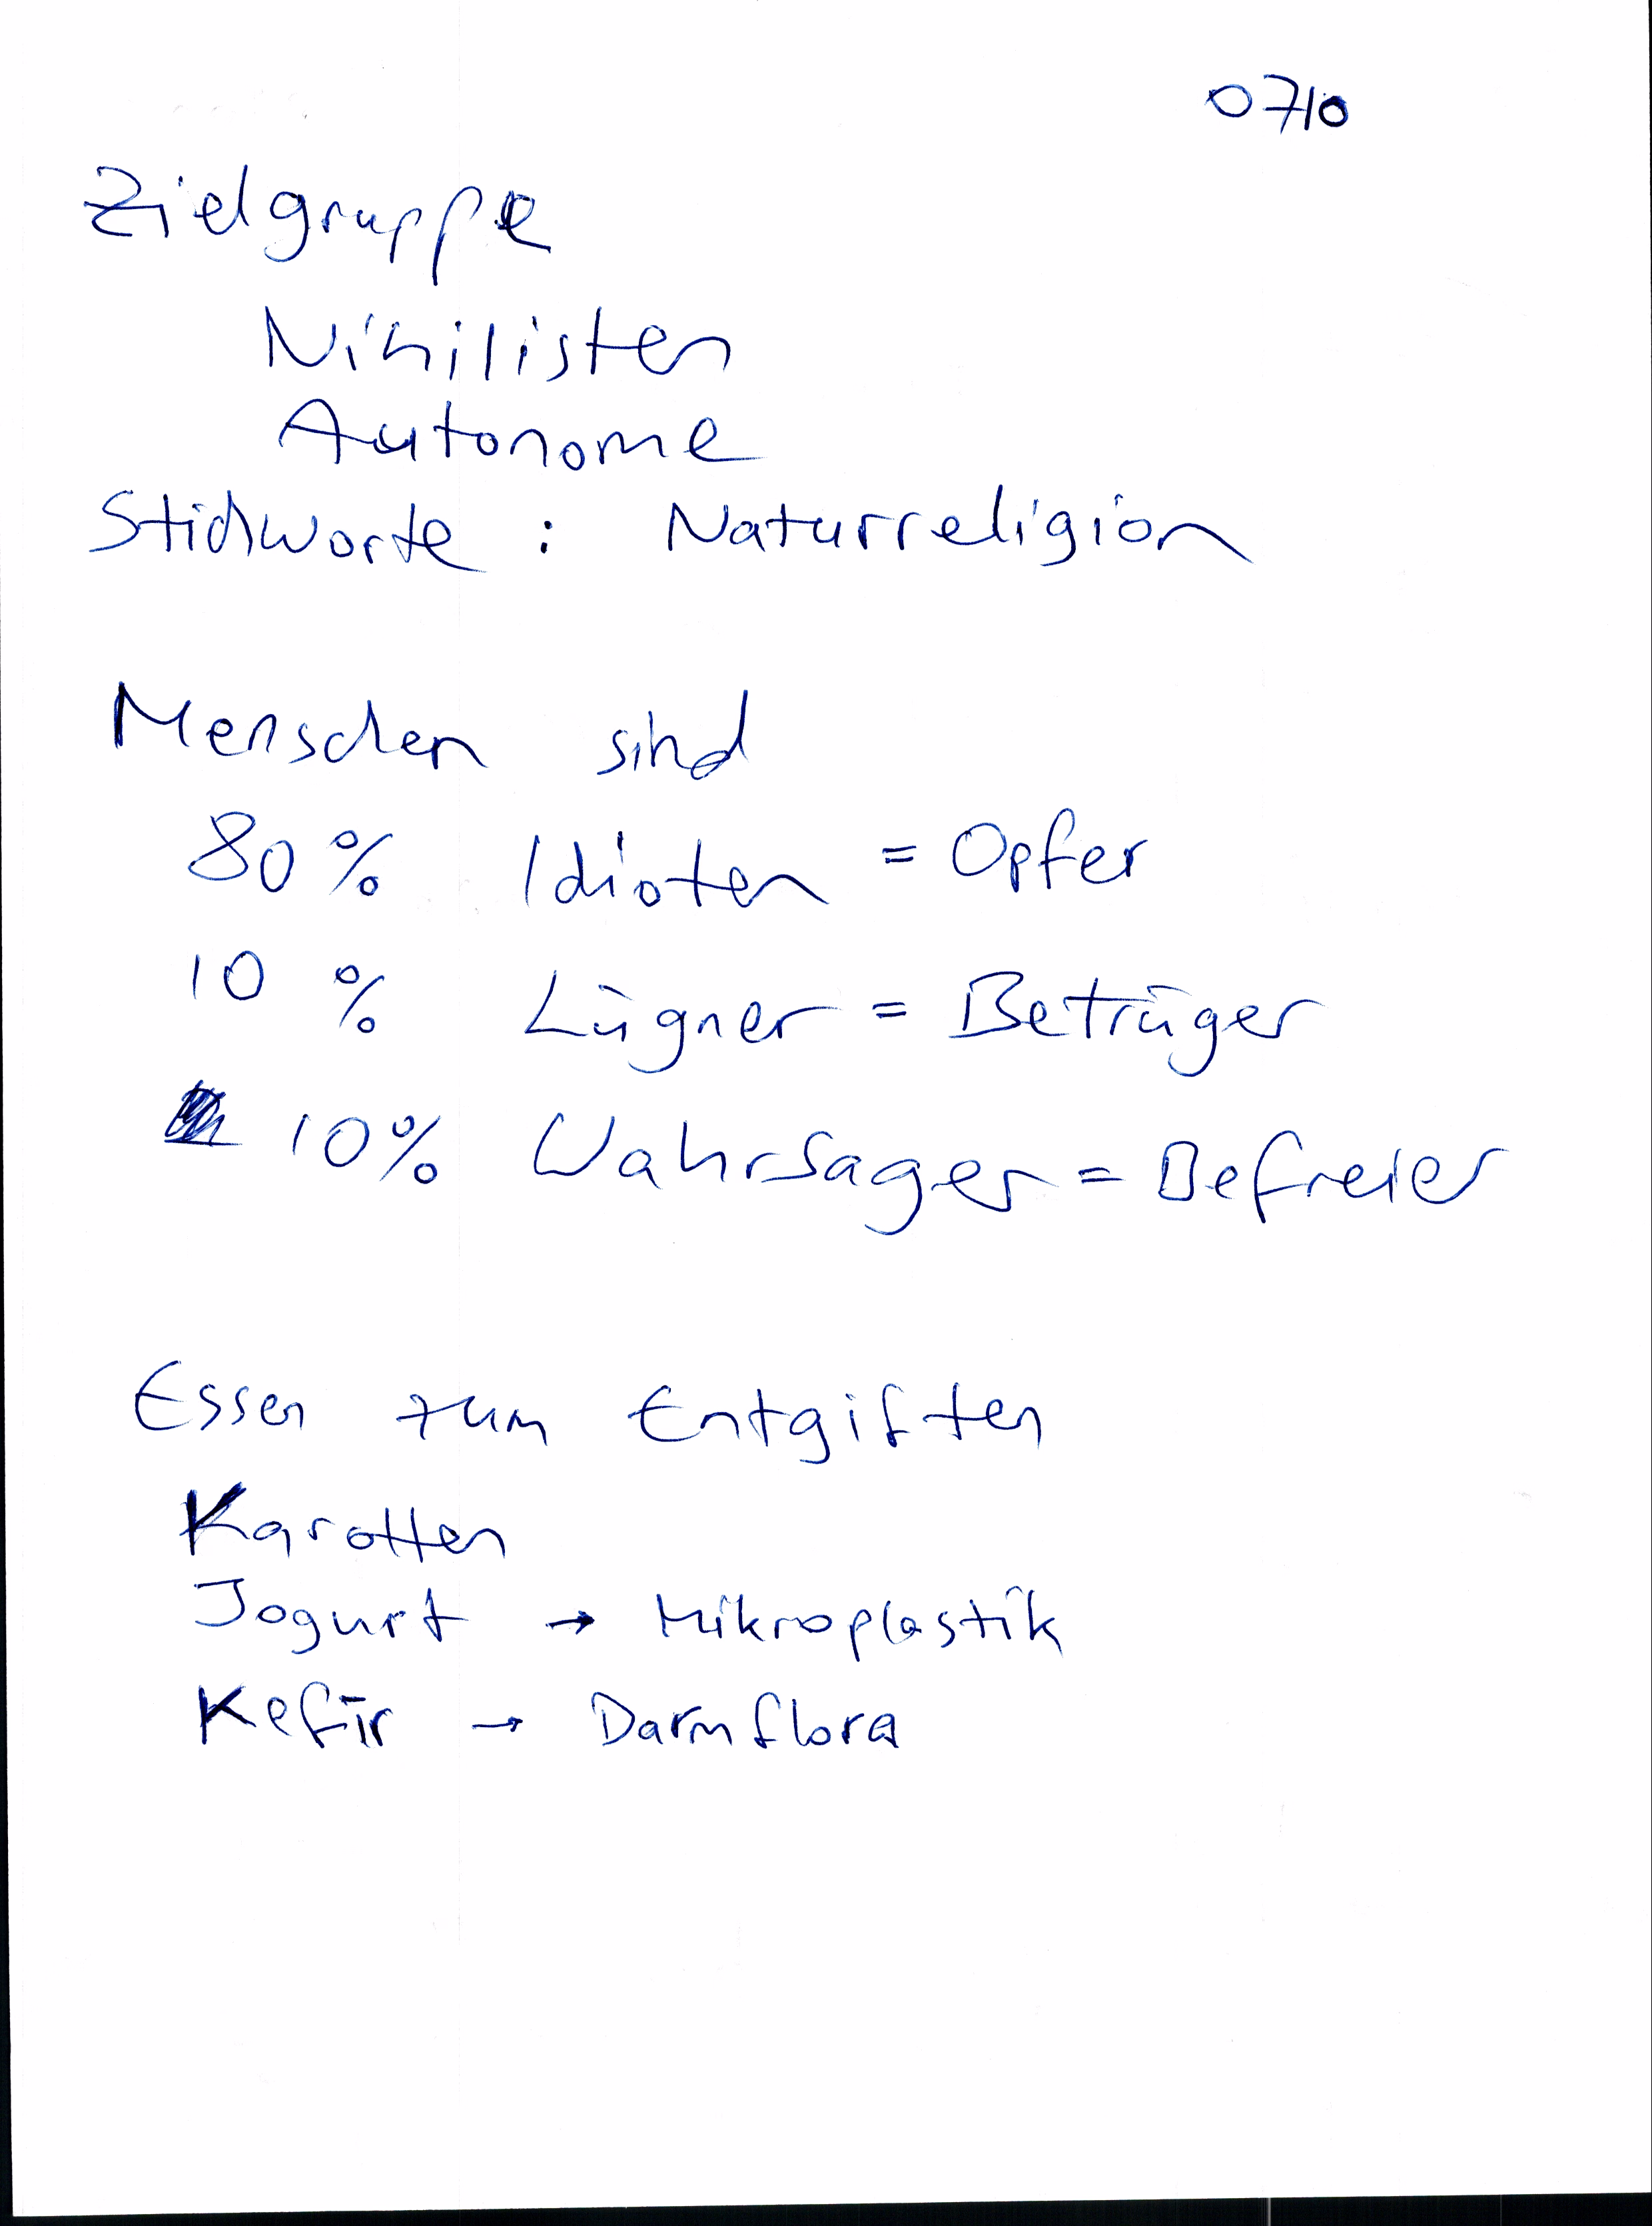 0710
Zielgruppe
Nihilisten
Autonome
Stichworte : Naturreligion
Menschen sind
80 % Idioten = Opfer
10 % Lügner = Betrüger
10% Wahrsager = Befreier
Essen zum Entgiften
Karotten
Jogurt → Mikroplastik
Kefir → Darmflora